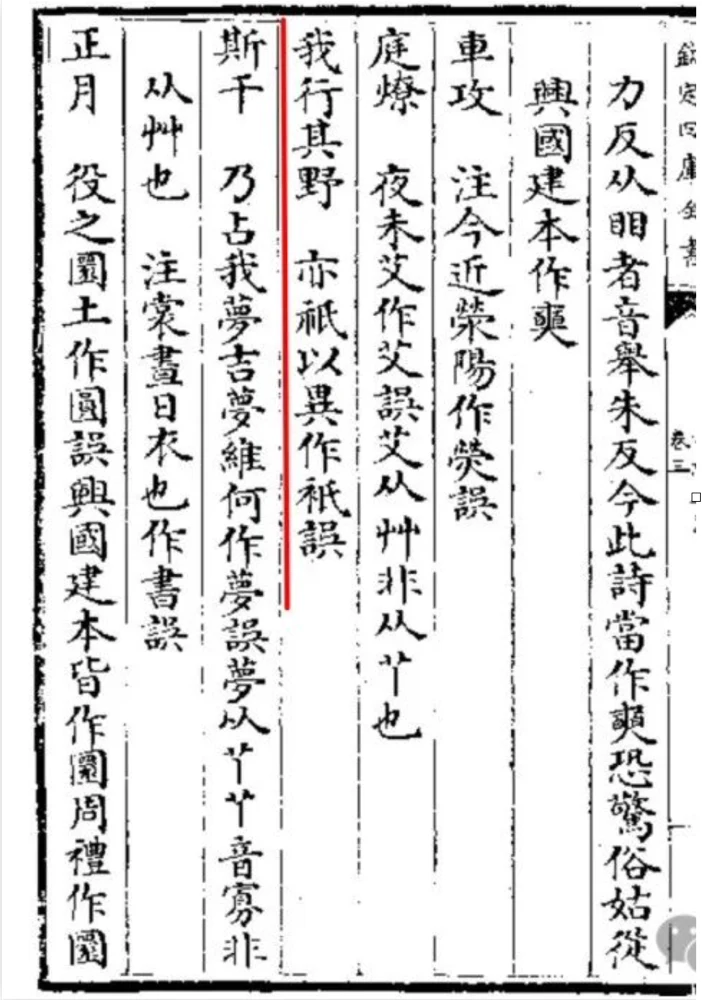 欽定四庫全書
卷三
力反从䀠者音舉朱反今此詩當作奭恐驚俗姑從
興國建本作奭
車攻　注今近滎陽作熒誤
庭燎　夜未艾作艾誤艾从艸非从𦫳也
我行其野　亦祇以異作衹誤
斯干　乃占我夢吉夢維何作夢誤夢从𦫳𦫳音寡非
从艸也　注裳晝日衣也作書誤
正月　役之圜土作圓誤興國建本皆作圜周禮作圜